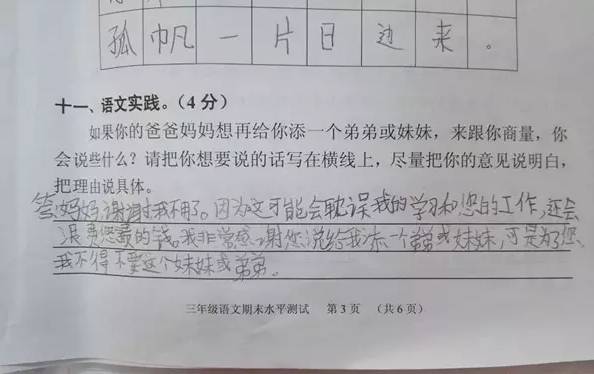 孤帆一片日边来。
十一、语文实践。(4分)
如果你的爸爸妈妈想再给你添一个弟弟或妹妹,来跟你商量,你
会说些什么?请把你想要说的话写在横线上,尽量把你的意见说明白,
把理由说具体。
答:妈妈,谢谢!我不用了。因为这可能会耽误我的学习和您的工作,还会
浪费您的钱。我非常感谢您说给我添一个弟弟或妹妹,可是为了您、
我不得不要这个妹妹或弟弟。
三年级语文期末水平测试 第3页 (共6页)